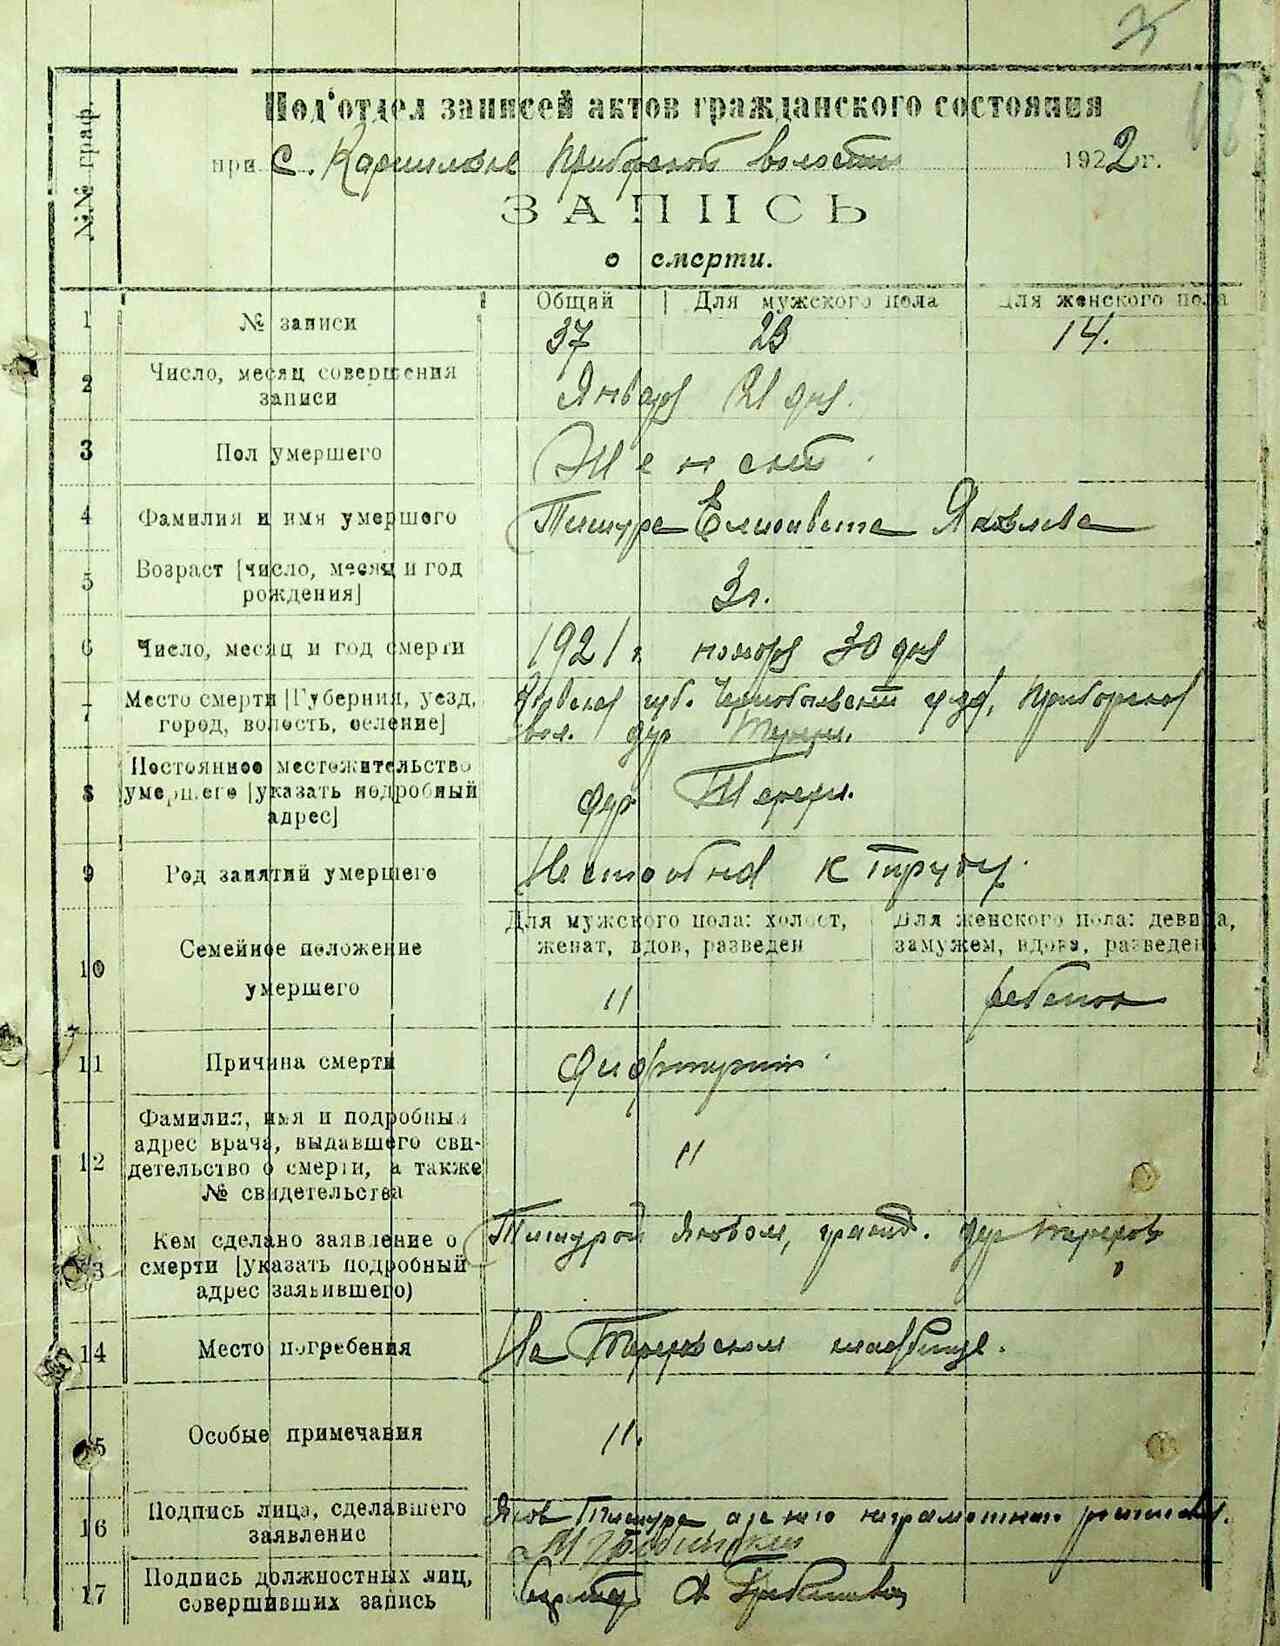 №№ граф.
Под'отдел записей актов гражданского состояния
при с. Карпиловке Приборской волости 1922 г.
ЗАПИСЬ
о смерти.
Общий Для мужского пола Для женского пола
1 № записи 37 23 14.
2 Число, месяц совершения
записи Января 21 дня.
3 Пол умершего Женский.
4 Фамилия и имя умершего Елисавета Яковлева
5 Возраст [число, месяц и год
рождения] 3 г.
6 Число, месяц и год смерти 1921 г. ноября 30 дня
7 Место смерти [Губерния, уезд,
город, волость, селение]
губ. Чернобыльский уезд, Приборской
вол. дер
8 Постоянное местожительство
умершего [указать подробный
адрес] дер
9 Род занятий умершего Неспособная к труду.
10 Семейное положение
умершего
Для мужского пола: холост,
женат, вдов, разведен
Для женского пола: девица,
замужем, вдова, разведен
" ребенок
11 Причина смерти Дифтерит
12 Фамилия, имя и подробный
адрес врача, выдавшего сви-
детельство о смерти, а также
№ свидетельства "
13 Кем сделано заявление о
смерти [указать подробный
адрес заявившего)
Яковом, гражд. дер Терехов
14 Место погребения На Тереховском кладбище.
15 Особые примечания ".
16 Подпись лица, сделавшего
заявление
Яков а за него неграмотного
17 Подпись должностных лиц,
совершивших запись